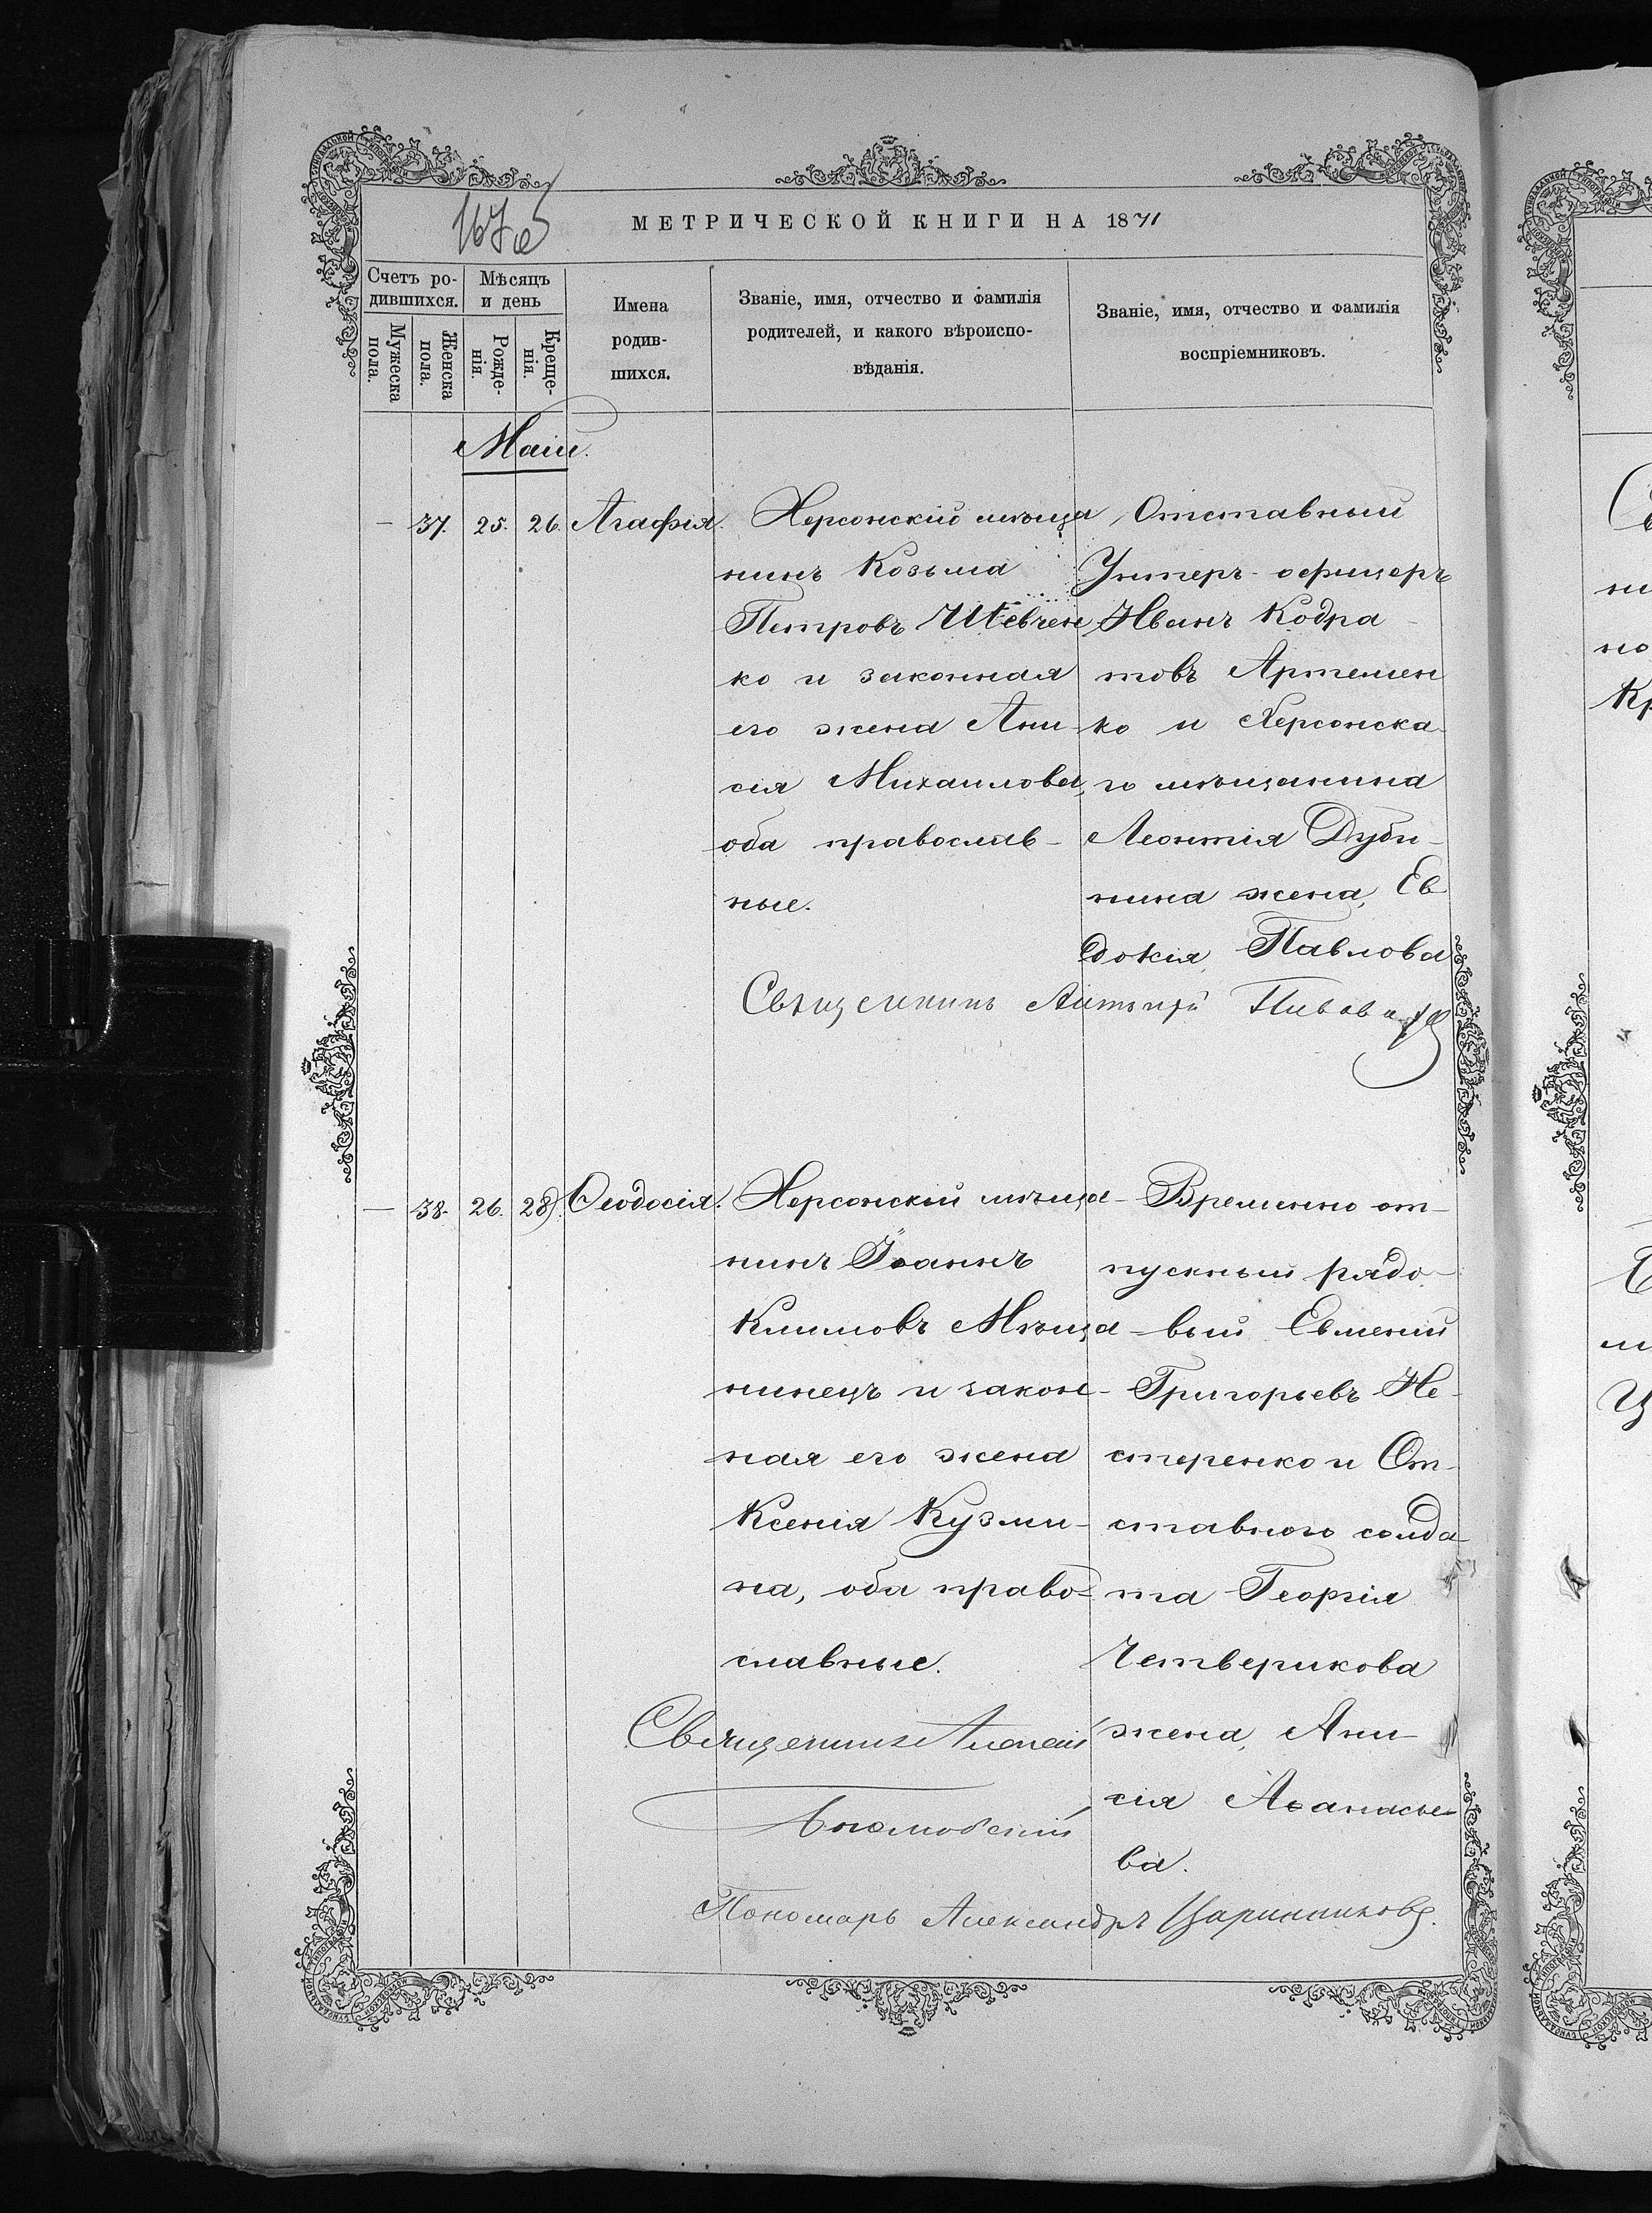 167 об
МЕТРИЧЕСКОЙ КНИГИ НА 1871
Счетъ родившихся.
Мѣсяцъ и день
Мужеска пола.
Женска пола.
Рожденія.
Крещенія.
Имена
родив-
шихся.
Званіе, имя, отчество и фамилія
родителей, и какого вѣроиспо-
вѣданія.
Званіе, имя, отчество и фамилія
воспріемниковъ.
Маій.
— 37. 25. 26. Агафія.
Херсонскій мѣща
нинъ Козьма
Петровъ Шевчен
ко и законная
его жена Ани-
сія Михаилова,
оба православ-
ные.
Отставный
Унтеръ-офицеръ
Иванъ Кодра-
товъ Артемен
ко и Херсонска-
го мѣщанина
Леонтія Дуби-
нина жена, Ев
докія Павлова
Священникъ
— 38. 26. 28. Ѳеодосія.
Херсонскій мѣща-
нинъ Іоаннъ
Климовъ Мѣща-
нинецъ и закон-
ная его жена
Ксенія Кузми-
на, оба право-
славные.
Временно от-
пускный рядо-
вый Евмений
Григорьевъ Не-
стеренко и От-
ставного солда-
та Георгія
Четверикова
жена, Ани-
сія Аѳанасье-
ва.
Священникъ Алексій
Пономарь Александръ Царинниковъ.